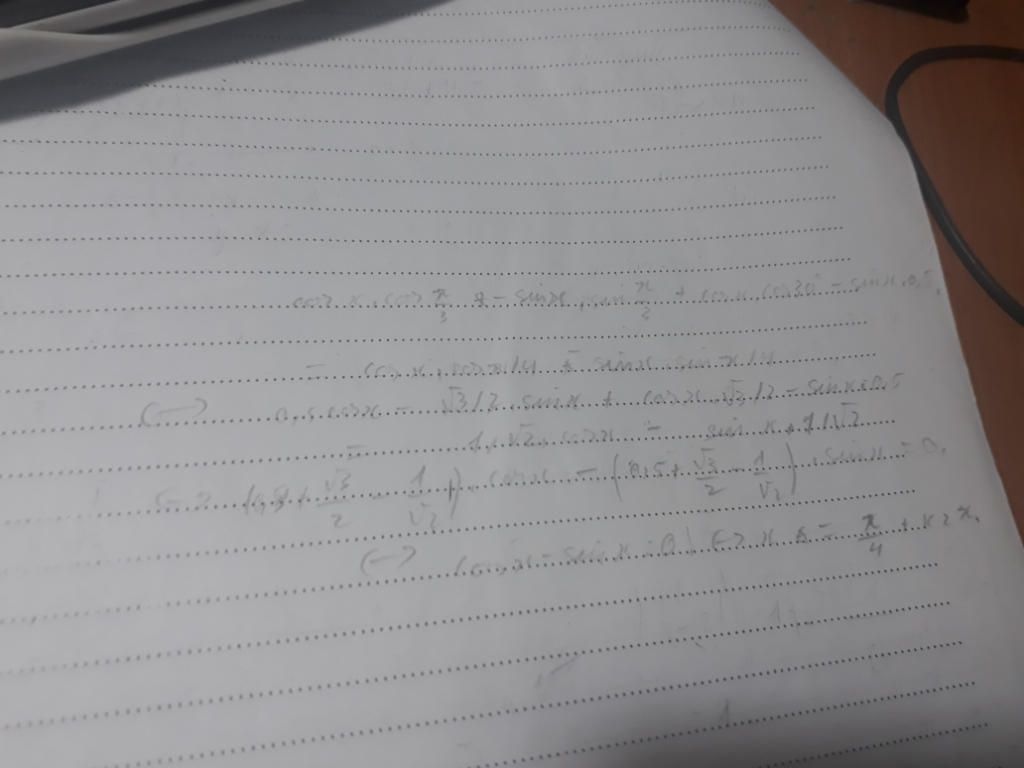 cos x . cos π/3 - sinx . sin π/3 + cosx.cos30° - sinx.0,5.
= cos x . cos π/4 - sinx . sin π/4
<=> 0,5.cosx - √3/2.sinx + cosx.√3/2 - sinx.0,5
= 1/√2.cosx - sin x.1/√2
<=> (0,5 + √3/2 - 1/√2).cosx - (0,5 + √3/2 - 1/√2).sinx = 0.
<=> cosx - sinx = 0 <=> x = π/4 + k2π.